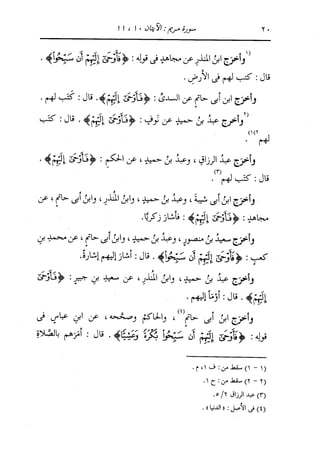 ٢٠ سورة مريم : الآيتان ١٠ ، ١١
(١) وأخرج ابنُ المنذرِ عن مجاهدٍ فى قوله : ﴿ فَأَوْحَىٰ إِلَيْهِمْ أَن سَبِّحُوا ﴾ .
قال : كتَب لهم فى الأرضِ .
وأخرَج ابن أبى حاتمٍ عن السدىِّ : ﴿ فَأَوْحَىٰ إِلَيْهِمْ ﴾ . قال : كتَب لهم .
(٢) وأخرج عبدُ بنُ حميدٍ عن نَوفٍ : ﴿ فَأَوْحَىٰ إِلَيْهِمْ ﴾ . قال : كتَب
لهم (١)(٢) .
وأخرَج عبدُ الرزاقِ ، وعبدُ بنُ حميدٍ ، عن الحكمِ : ﴿ فَأَوْحَىٰ إِلَيْهِمْ ﴾ .
قال : كتَب لهم (٣) .
وأخرَج ابنُ أبى شيبةَ ، وعبدُ بنُ حميدٍ ، وابنُ المنذرِ ، وابنُ أبى حاتمٍ ، عن
مجاهدٍ : ﴿ فَأَوْحَىٰ إِلَيْهِمْ ﴾ : فأشار زكريَّا .
وأخرَج سعيدُ بنُ منصورٍ ، وعبدُ بنُ حميدٍ ، وابنُ أبى حاتمٍ ، عن محمدِ بنِ
كعبٍ : ﴿ فَأَوْحَىٰ إِلَيْهِمْ أَن سَبِّحُوا ﴾ . قال : أشار إليهم إشارةً .
وأخرَج عبدُ بنُ حميدٍ ، وابنُ المنذرِ ، عن سعيدِ بنِ جبيرٍ : ﴿ فَأَوْحَىٰ
إِلَيْهِمْ ﴾ . قال : أومَأ إليهم .
وأخرَج ابنُ أبى حاتمٍ (٤) ، والحاكمُ وصحَّحه ، عن ابنِ عباسٍ فى
قوله : ﴿ فَأَوْحَىٰ إِلَيْهِمْ أَن سَبِّحُوا بُكْرَةً وَعَشِيًّا ﴾ . قال : أمَرهم بالصَّلاةِ
(١ - ١) سقط من : ف ١ ، م .
(٢ - ٢) سقط من : ح ١ .
(٣) عبد الرزاق ٢/ ٥ .
(٤) فى الأصل : « الدنيا » .